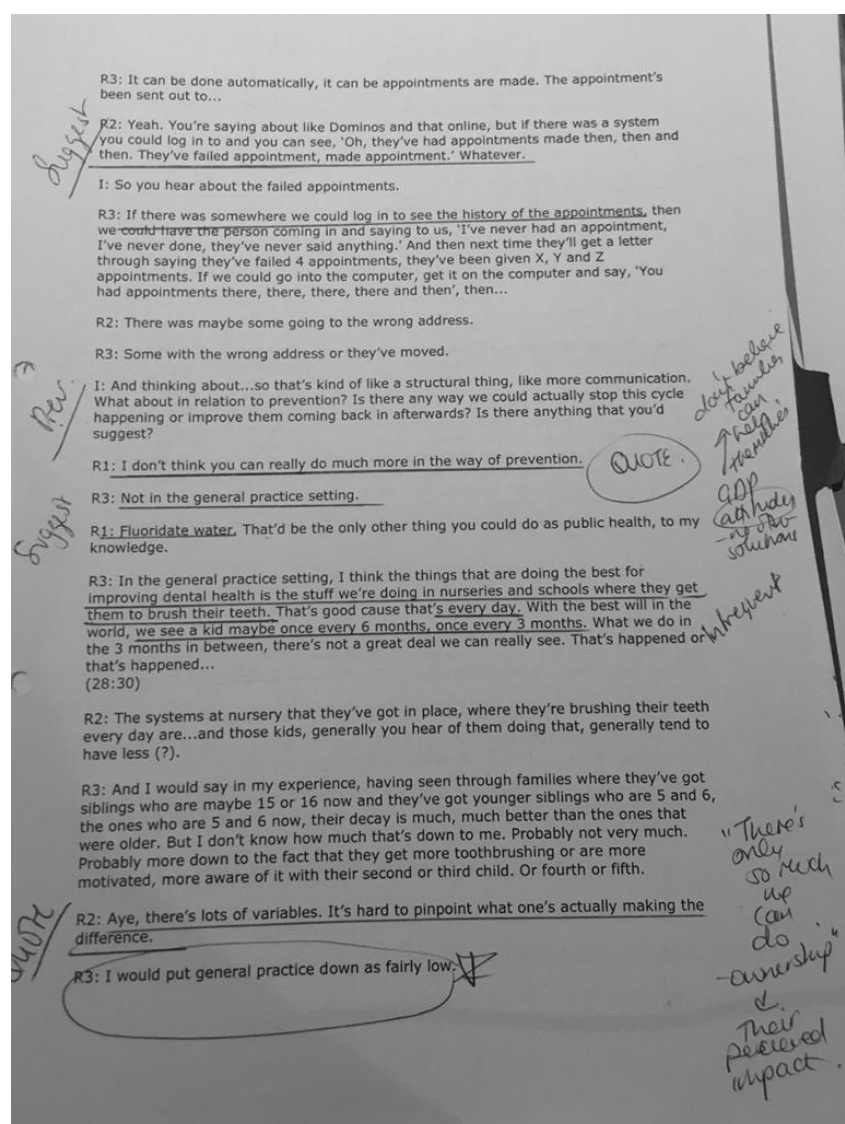 R3: It can be done automatically, it can be appointments are made. The appointment's
been sent out to...
Suggest
R2: Yeah. You're saying about like Dominos and that online, but if there was a system
you could log in to and you can see, 'Oh, they've had appointments made then, then and
then. They've failed appointment, made appointment.' Whatever.
I: So you hear about the failed appointments.
R3: If there was somewhere we could log in to see the history of the appointments, then
we could have the person coming in and saying to us, 'I've never had an appointment,
I've never done, they've never said anything.' And then next time they'll get a letter
through saying they've failed 4 appointments, they've been given X, Y and Z
appointments. If we could go into the computer, get it on the computer and say, 'You
had appointments there, there, there, there and then', then...
R2: There was maybe some going to the wrong address.
R3: Some with the wrong address or they've moved.
Prev.
I: And thinking about...so that's kind of like a structural thing, like more communication.
What about in relation to prevention? Is there any way we could actually stop this cycle
happening or improve them coming back in afterwards? Is there anything that you'd
suggest?
don't believe
families
can
help
themselves
R1: I don't think you can really do much more in the way of prevention.
QUOTE.
R3: Not in the general practice setting.
GDP
attitudes
solutions
Suggest
R1: Fluoridate water. That'd be the only other thing you could do as public health, to my
knowledge.
R3: In the general practice setting, I think the things that are doing the best for
improving dental health is the stuff we're doing in nurseries and schools where they get
them to brush their teeth. That's good cause that's every day. With the best will in the
world, we see a kid maybe once every 6 months, once every 3 months. What we do in
the 3 months in between, there's not a great deal we can really see. That's happened or
that's happened...
(28:30)
Infrequent
R2: The systems at nursery that they've got in place, where they're brushing their teeth
every day are...and those kids, generally you hear of them doing that, generally tend to
have less (?).
R3: And I would say in my experience, having seen through families where they've got
siblings who are maybe 15 or 16 now and they've got younger siblings who are 5 and 6,
the ones who are 5 and 6 now, their decay is much, much better than the ones that
were older. But I don't know how much that's down to me. Probably not very much.
Probably more down to the fact that they get more toothbrushing or are more
motivated, more aware of it with their second or third child. Or fourth or fifth.
QUOTE
R2: Aye, there's lots of variables. It's hard to pinpoint what one's actually making the
difference.
R3: I would put general practice down as fairly low.
"There's
only
so much
we
can
do"
-ownership
Their
perceived
impact.